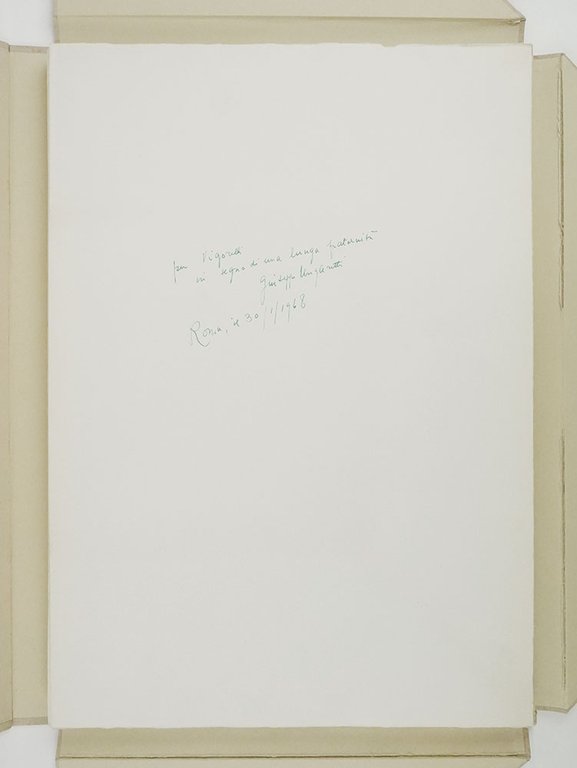 per Vigorelli
in segno di una lunga fraternità
Giuseppe Ungaretti
Roma, il 30/1/1968